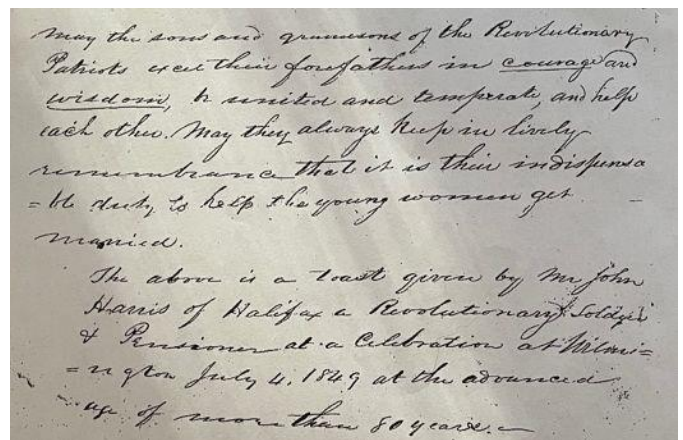 May the sons and grandsons of the Revolutionary
Patriots excel their forefathers in courage and
wisdom, be united and temperate, and help
each other. May they always keep in lively
remembrance that it is their indispensa
=ble duty to help the young women get
married.
The above is a toast given by Mr John
Harris of Halifax a Revolutionary Soldier
& Pensioner at a Celebration at Wilmi=
=ngton July 4, 1849 at the advanced
age of more than 80 years.